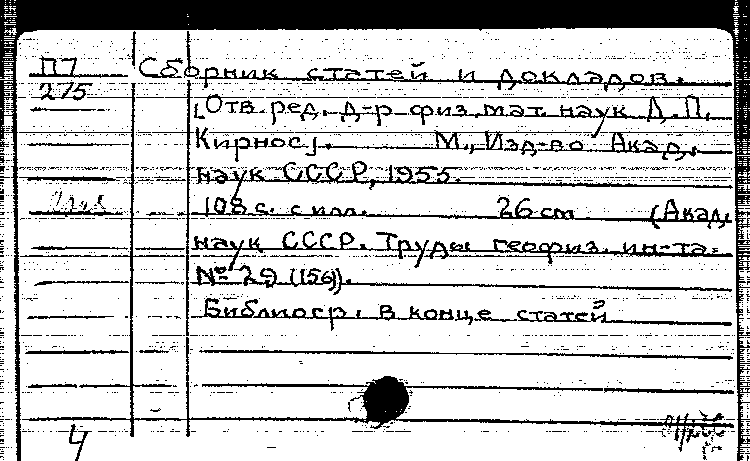 П7 Сборник статей и докладов.
275
[Отв. ред. д-р физ. мат. наук Д. П.
Кирнос]. М., Изд-во Акад.
наук СССР, 1955.
108 с. с илл. 26 см (Акад.
наук СССР. Труды геофиз. ин-та.
№ 29 (156)).
Библиогр. в конце статей
4